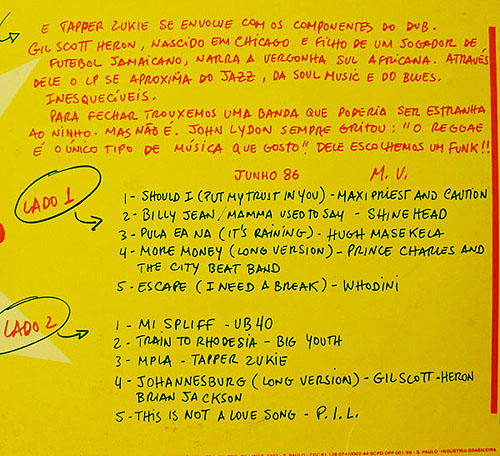 E TAPPER ZUKIE SE ENVOLVE COM OS COMPONENTES DO DUB.
GIL SCOTT HERON, NASCIDO EM CHICAGO E FILHO DE UM JOGADOR DE
FUTEBOL JAMAICANO, NARRA A VERGONHA SUL AFRICANA. ATRAVÉS
DELE O LP SE APROXIMA DO JAZZ, DA SOUL MUSIC E DO BLUES.
INESQUECÍVEIS.
PARA FECHAR TROUXEMOS UMA BANDA QUE PODERIA SER ESTRANHA
AO NINHO. MAS NÃO É. JOHN LYDON SEMPRE GRITOU: "O REGGAE
É O ÚNICO TIPO DE MÚSICA QUE GOSTO". DELE ESCOLHEMOS UM FUNK!!
JUNHO 86 M. V.
LADO 1
1- SHOULD I (PUT MY TRUST IN YOU) - MAXI PRIEST AND CAUTION
2- BILLY JEAN/MAMMA USED TO SAY - SHINEHEAD
3- PULA EA NA (IT'S RAINING) - HUGH MASEKELA
4- MORE MONEY (LONG VERSION) - PRINCE CHARLES AND
THE CITY BEAT BAND
5- ESCAPE (I NEED A BREAK) - WHODINI
LADO 2
1- MI SPLIFF - UB40
2- TRAIN TO RHODESIA - BIG YOUTH
3- MPLA - TAPPER ZUKIE
4- JOHANNESBURG (LONG VERSION) - GIL SCOTT-HERON
BRIAN JACKSON
5- THIS IS NOT A LOVE SONG - P.I.L.
S. PAULO - INDÚSTRIA BRASILEIRA